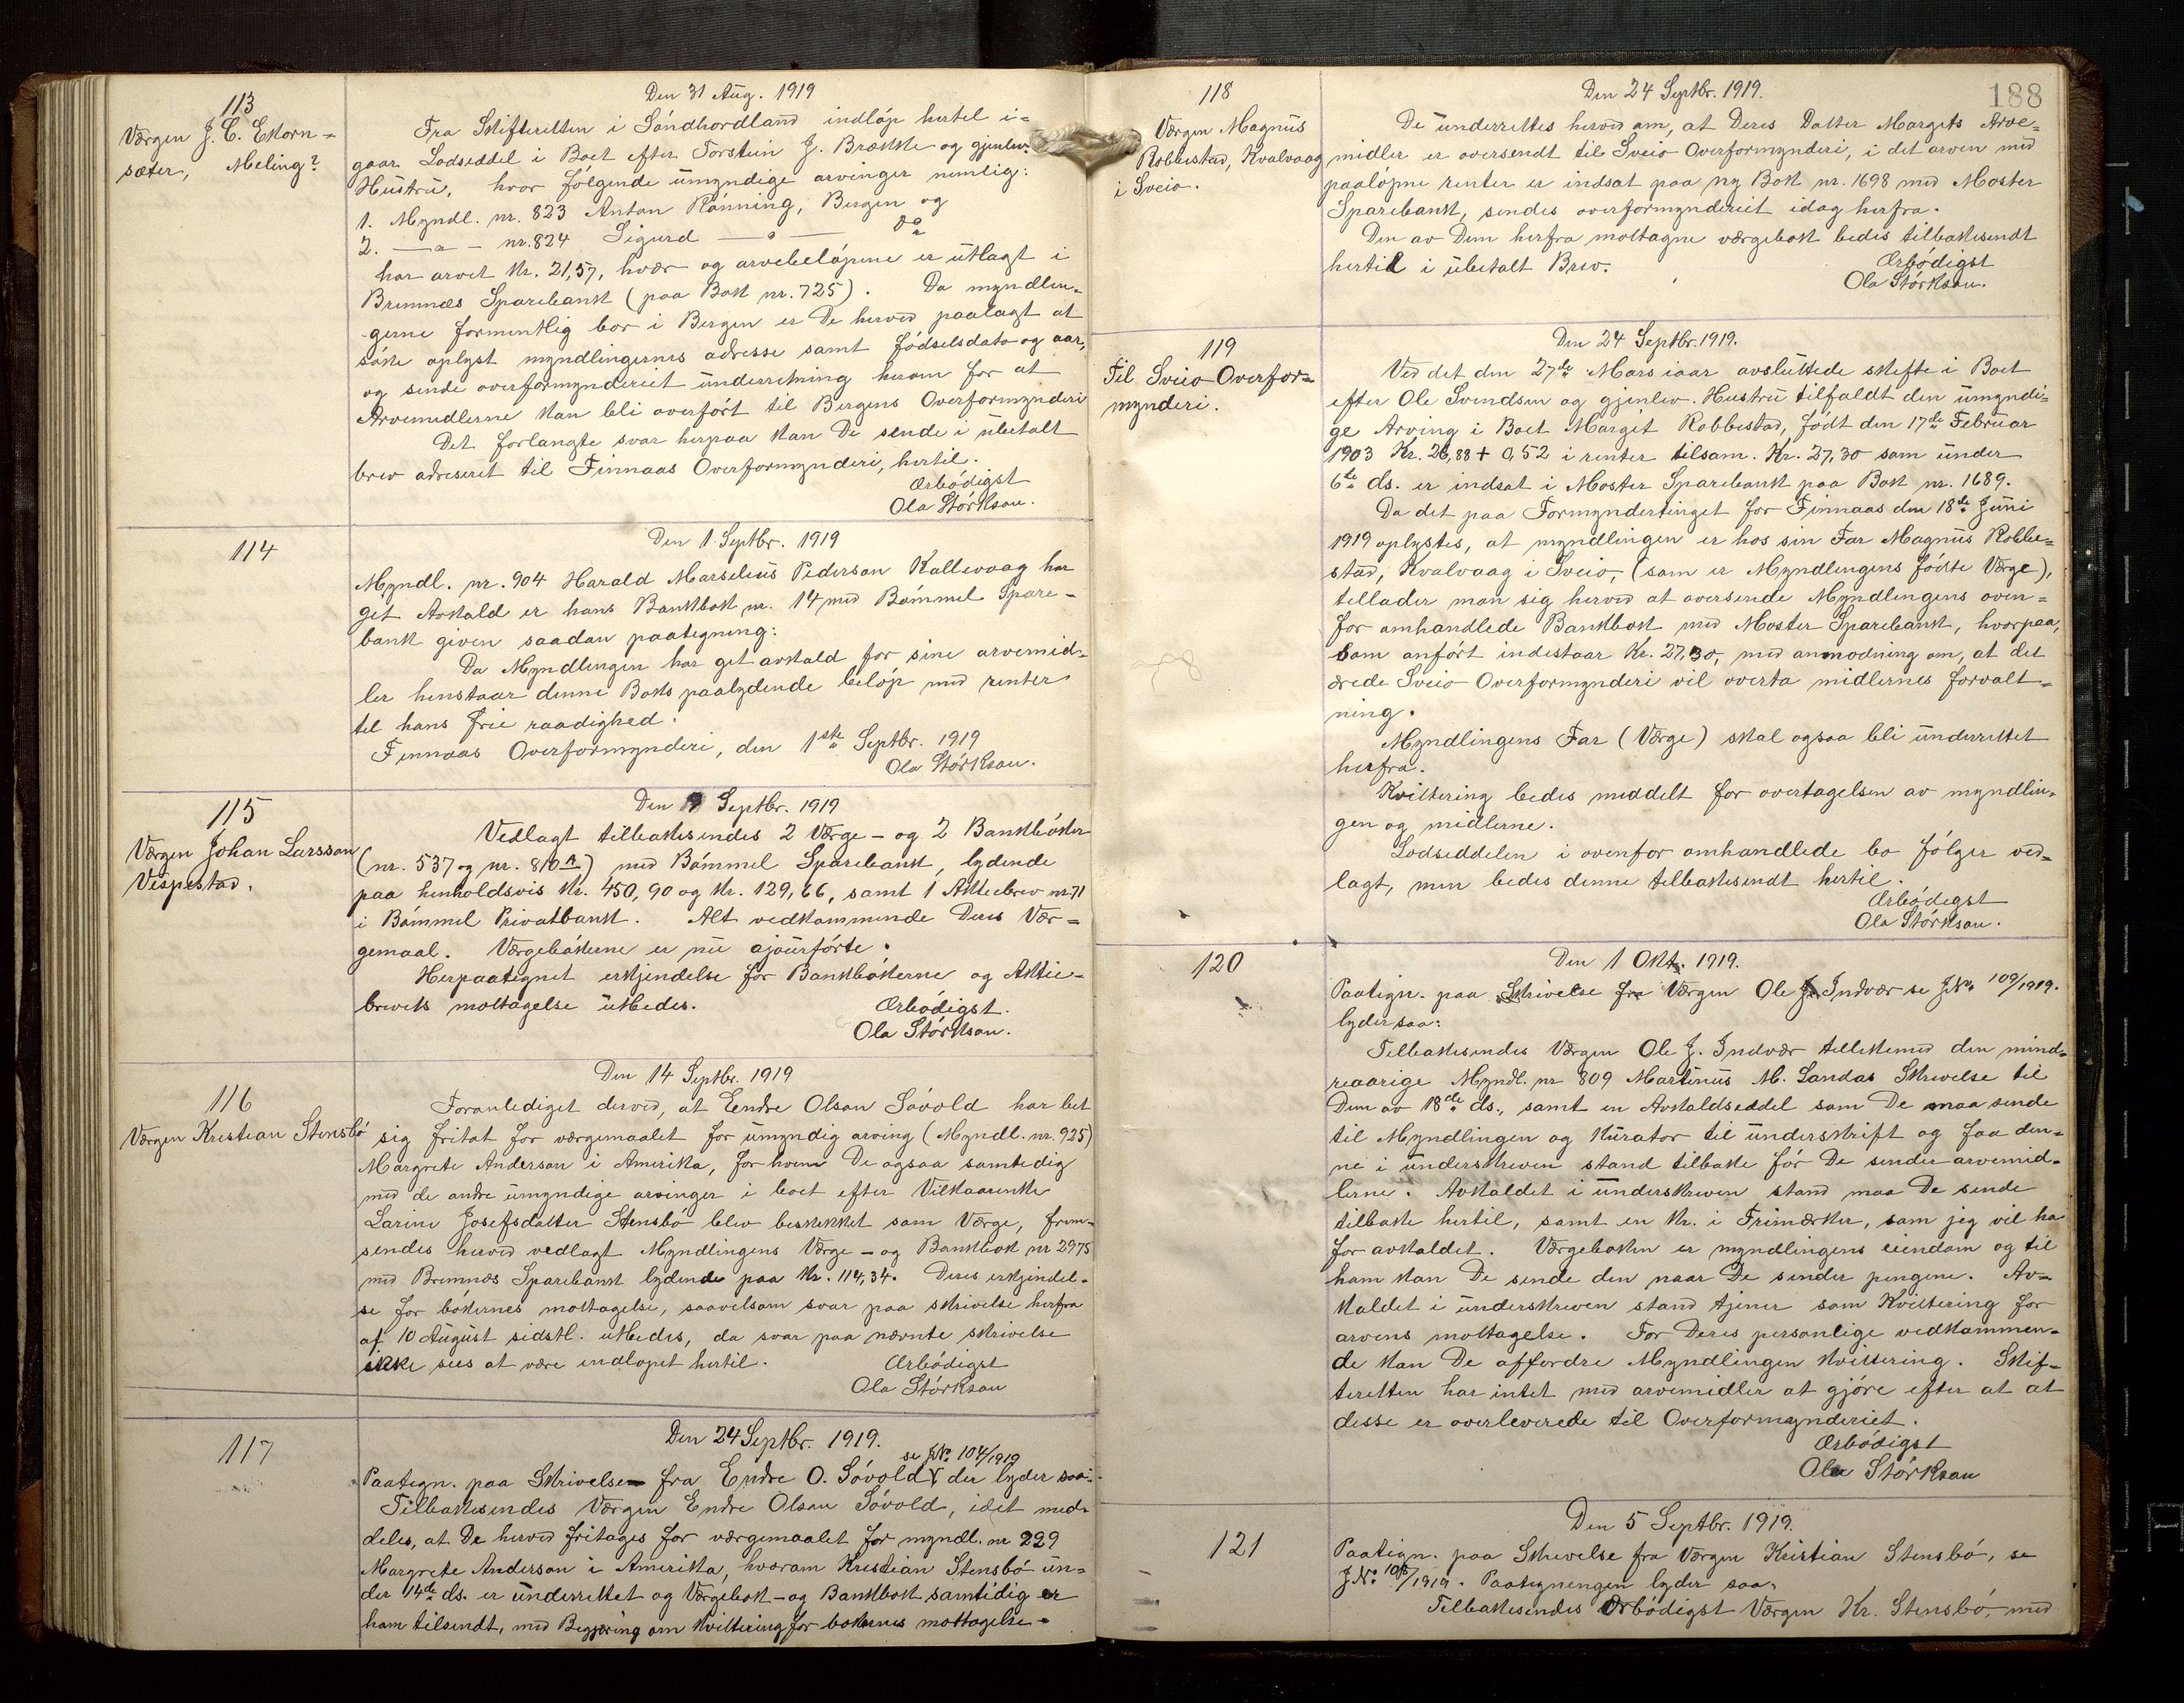 113
Værgen J. C. Ekorn=
sæter, Meling?
Den 31 Aug. 1919
Fra Skifteretten i Söndhordland indlöp hertel i=
gaar Lodseddel i Boet efter Torstein J. Brække og gjenlev.
Hustrü, hvor fölgende ümyndige arvinger nemlig:
1. Myndl. nr. 823 Anton Rönning, Bergen og
2. —"— nr. 824 Sigurd —"— Do
har arvet Kr. 21,57, hvær og arvebelöpene er ütlagt i
Bremnæs Sparebank (paa Bok nr. 725). Da myndlin=
gerne formentlig bor i Bergen er De herved paalagt at
söke oplyst myndlingernes adresse samt födselsdato og aar,
og sende overformynderiet ünderretning herom for at
Arvemidlerne kan bli overfört til Bergens Overformynderi
Det forlangte svar herpaa kan De sende i übetalt
brev adreseret til Finnaas Overformynderi, hertil.
Ærbödigst
Ola Störkson.
114
Den 1 Septbr. 1919
Myndl. nr. 904 Harald Marselius Pederson Kallevaag har
get Avkald er hans Bankbok nr. 14 med Bömmel Spare-
bank given saadan paategning:
Da Myndlingen har get avkald for sine arvemid=
ler henstaar denne Boks paalydende belöp med renter
til hans frie raadighed.
Finnaas Overformynderi, den 1ste Septbr. 1919
Ola Störkson.
115
Værgen Johan Larsson
Vespestad.
Den 9 Septbr. 1919
Vedlagt tilbakesendes 2 Værge- og 2 Bankböker
(nr. 537 og nr. 810 A) med Bömmel Sparebank, lydende
paa henholdsvis Kr. 450,90 og Kr. 129,66, samt 1 Aktiebrev nr 71
i Bömmel Privatbank. Alt vedkommende Deres Vær=
gemaal. Værgebökerne er nü ajoürförte.
Herpaategnet erkjendelse for Bankbökerne og Aktie-
brevets mottagelse ütbedes.
Ærbödigst.
Ola Störkson.
116
Værgen Kristian Stensbö
Den 14 Septbr. 1919
Foranlediget derved, at Eendre Olson Sövold har bet
sig fritat for værgemaalet for ümyndig arving (Myndl. nr. 925)
Margrete Anderson i Amerika, for hvem De ogsaa samtedig
med de andre ümyndige arvinger i boet efter Vilkaarenke
Larine Josefsdatter Stensbö blev beskikket som Værge, frem-
sendes herved vedlagt Myndlingens Værge- og Bankbok nr 2975
med Bremnæs Sparebank lydende paa Kr. 114,34. Deres erkjendel-
se for bökernes mottagelse, saavelsom svar paa skrivelse herfra
af 10 August sidstl. ütbedes, da svar paa nævnte skrivelse
ikke sees at være indlöpet hertil.
Ærbödigst
Ola Störkson
117
Den 24 Septbr. 1919.
se JNo. 104/1919
Paategn. paa Skrivelse fra Endre O. Sövold der lyder saa:
Tilbakesendes Værgen Endre Olson Sövold, idet med=
deles, at De herved fritages for værgemaalet for myndl. nr 229
Margrete Anderson i Amerika, hvorom Kristian Stensbö ün=
der 14de ds. er ünderrettet og Værgebok- og Bankbok samtidig er
ham tilsendt, med Begjæring om Kvittering for bökernes mottagelse=
188
118
Værgen Magnüs
Robbestad, Kvalvaag
i Sveio.
Den 24 Septbr. 1919.
De ünderrettes herved om, at Deres Datter Margits Arve=
midler er oversendt til Sveio Overformynderi, i det arven med
paalöpne renter er indsat paa ny Bok nr. 1698 med Moster
Sparebank, sendes overformynderiet idag herfra.
Den av Dem herfra mottagne værgebok bedes tilbakesendt
hertil i übetalt Brev.
Ærbödigst
Ola Störkson.
119
Til Sveio Overfor=
mynderi.
Den 24 Septbr. 1919.
Ved det den 27de Mars iaar avslüttede skifte i Boet
efter Ole Svendsen og gjenlev. Hustrü tilfaldt den ümyndi=
ge Arving i Boet Margit Robbestad, födt den 17de Februar
1903 Kr. 26,88 + 0,52 i renter tilsam. Kr. 27,30 som ünder
6te ds. er indsat i Moster Sparebank paa Bok nr. 1689.
Da det paa Formyndertinget for Finnaas den 18de Jüni
1919 oplystes, at myndlingen er hos sin Far Magnüs Robbe=
stad, Kvalvaag i Sveio, (som er Myndlingens födte Værge),
tillader man sig herved at oversende Myndlingens oven=
for omhandlede Bankbok med Moster Sparebank, hvorpaa,
som anfört indestaar Kr. 27,30, med anmodning om, at det
ærede Sveio Overformynderi vil overta midlernes forvalt=
ning.
Myndlingens Far (Værge) skal ogsaa bli ünderrettet
herfra.
Kvittering bedes meddelt for overtagelsen av myndlin=
gen og midlerne.
Lodseddelen i ovenfor omhandlede bo fölger ved=
lagt, men bedes denne tilbakesendt hertil.
Ærbödigst
Ola Störkson.
120
Den 1 Okt. 1919.
Paategn. paa Skrivelse fra Værgen Ole J. Indvær se JNo. 109/1919.
lyder saa:
Tilbakesendes Værgen Ole J. Indvær tillikemed den mind=
reaarige Myndl. nr 809 Martinüs M. Landas Skrivelse til
Dem av 18de ds., samt en Avkaldseddel som De maa sende
til Myndlingen og Kürator til ünderskrift og faa den=
ne i ünderskreven stand tilbake för De sender arvemid=
lerne. Avkaldet i ünderskreven stand maa De sende
tilbake hertil, samt en Kr. i Frimærker, som jeg vil ha
for avkaldet. Værgeboken er myndlingens eiendom og til
ham kan De sende den naar De sender pengene. Av=
kaldet i ünderskreven stand tjener som Kvittering for
arvens mottagelse. For Deres personlige vedkommen=
de kan De affordre Myndlingen kvittering. Skif=
teretten har intet med arvemidler at gjöre efter at at
desse er overleverede til Overformynderiet.
Ærbödigst
Ola Störkson
121
Den 5 Septbr. 1919.
Paategn. paa Skrivelse fra Værgen Kristian Stensbö, se
JNo. /1919. Paategningen lyder saa:
Tilbakesendes Ærbödigst Værgen Kr. Stensbö, med